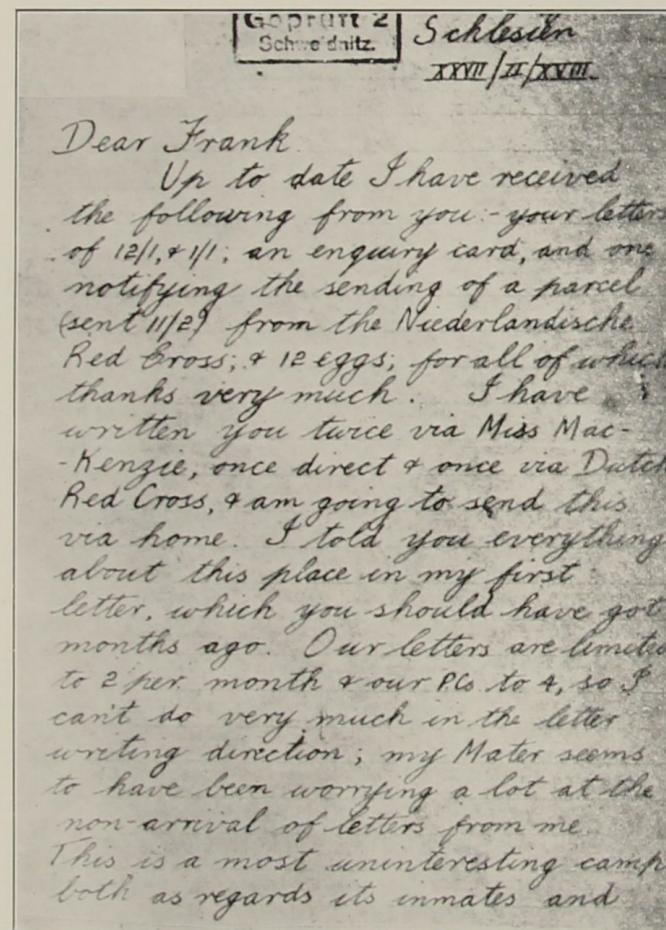 Geprüft 2
Schweidnitz.
Schlesien
XXVII/II/XVIII
Dear Frank
Up to date I have received
the following from you :- your letters
of 12/1, & 1/1; an enquiry card, and one
notifying the sending of a parcel
(sent 11/2) from the Niederlandische
Red Cross; & 12 eggs; for all of which
thanks very much. I have
written you twice via Miss Mac-
-Kenzie, once direct & once via Dutch
Red Cross, & am going to send this
via home. I told you everything
about this place in my first
letter, which you should have got
months ago. Our letters are limited
to 2 per month & our PCs to 4, so I
can't do very much in the letter
writing direction; my Mater seems
to have been worrying a lot at the
non-arrival of letters from me.
This is a most uninteresting camp
both as regards its inmates and